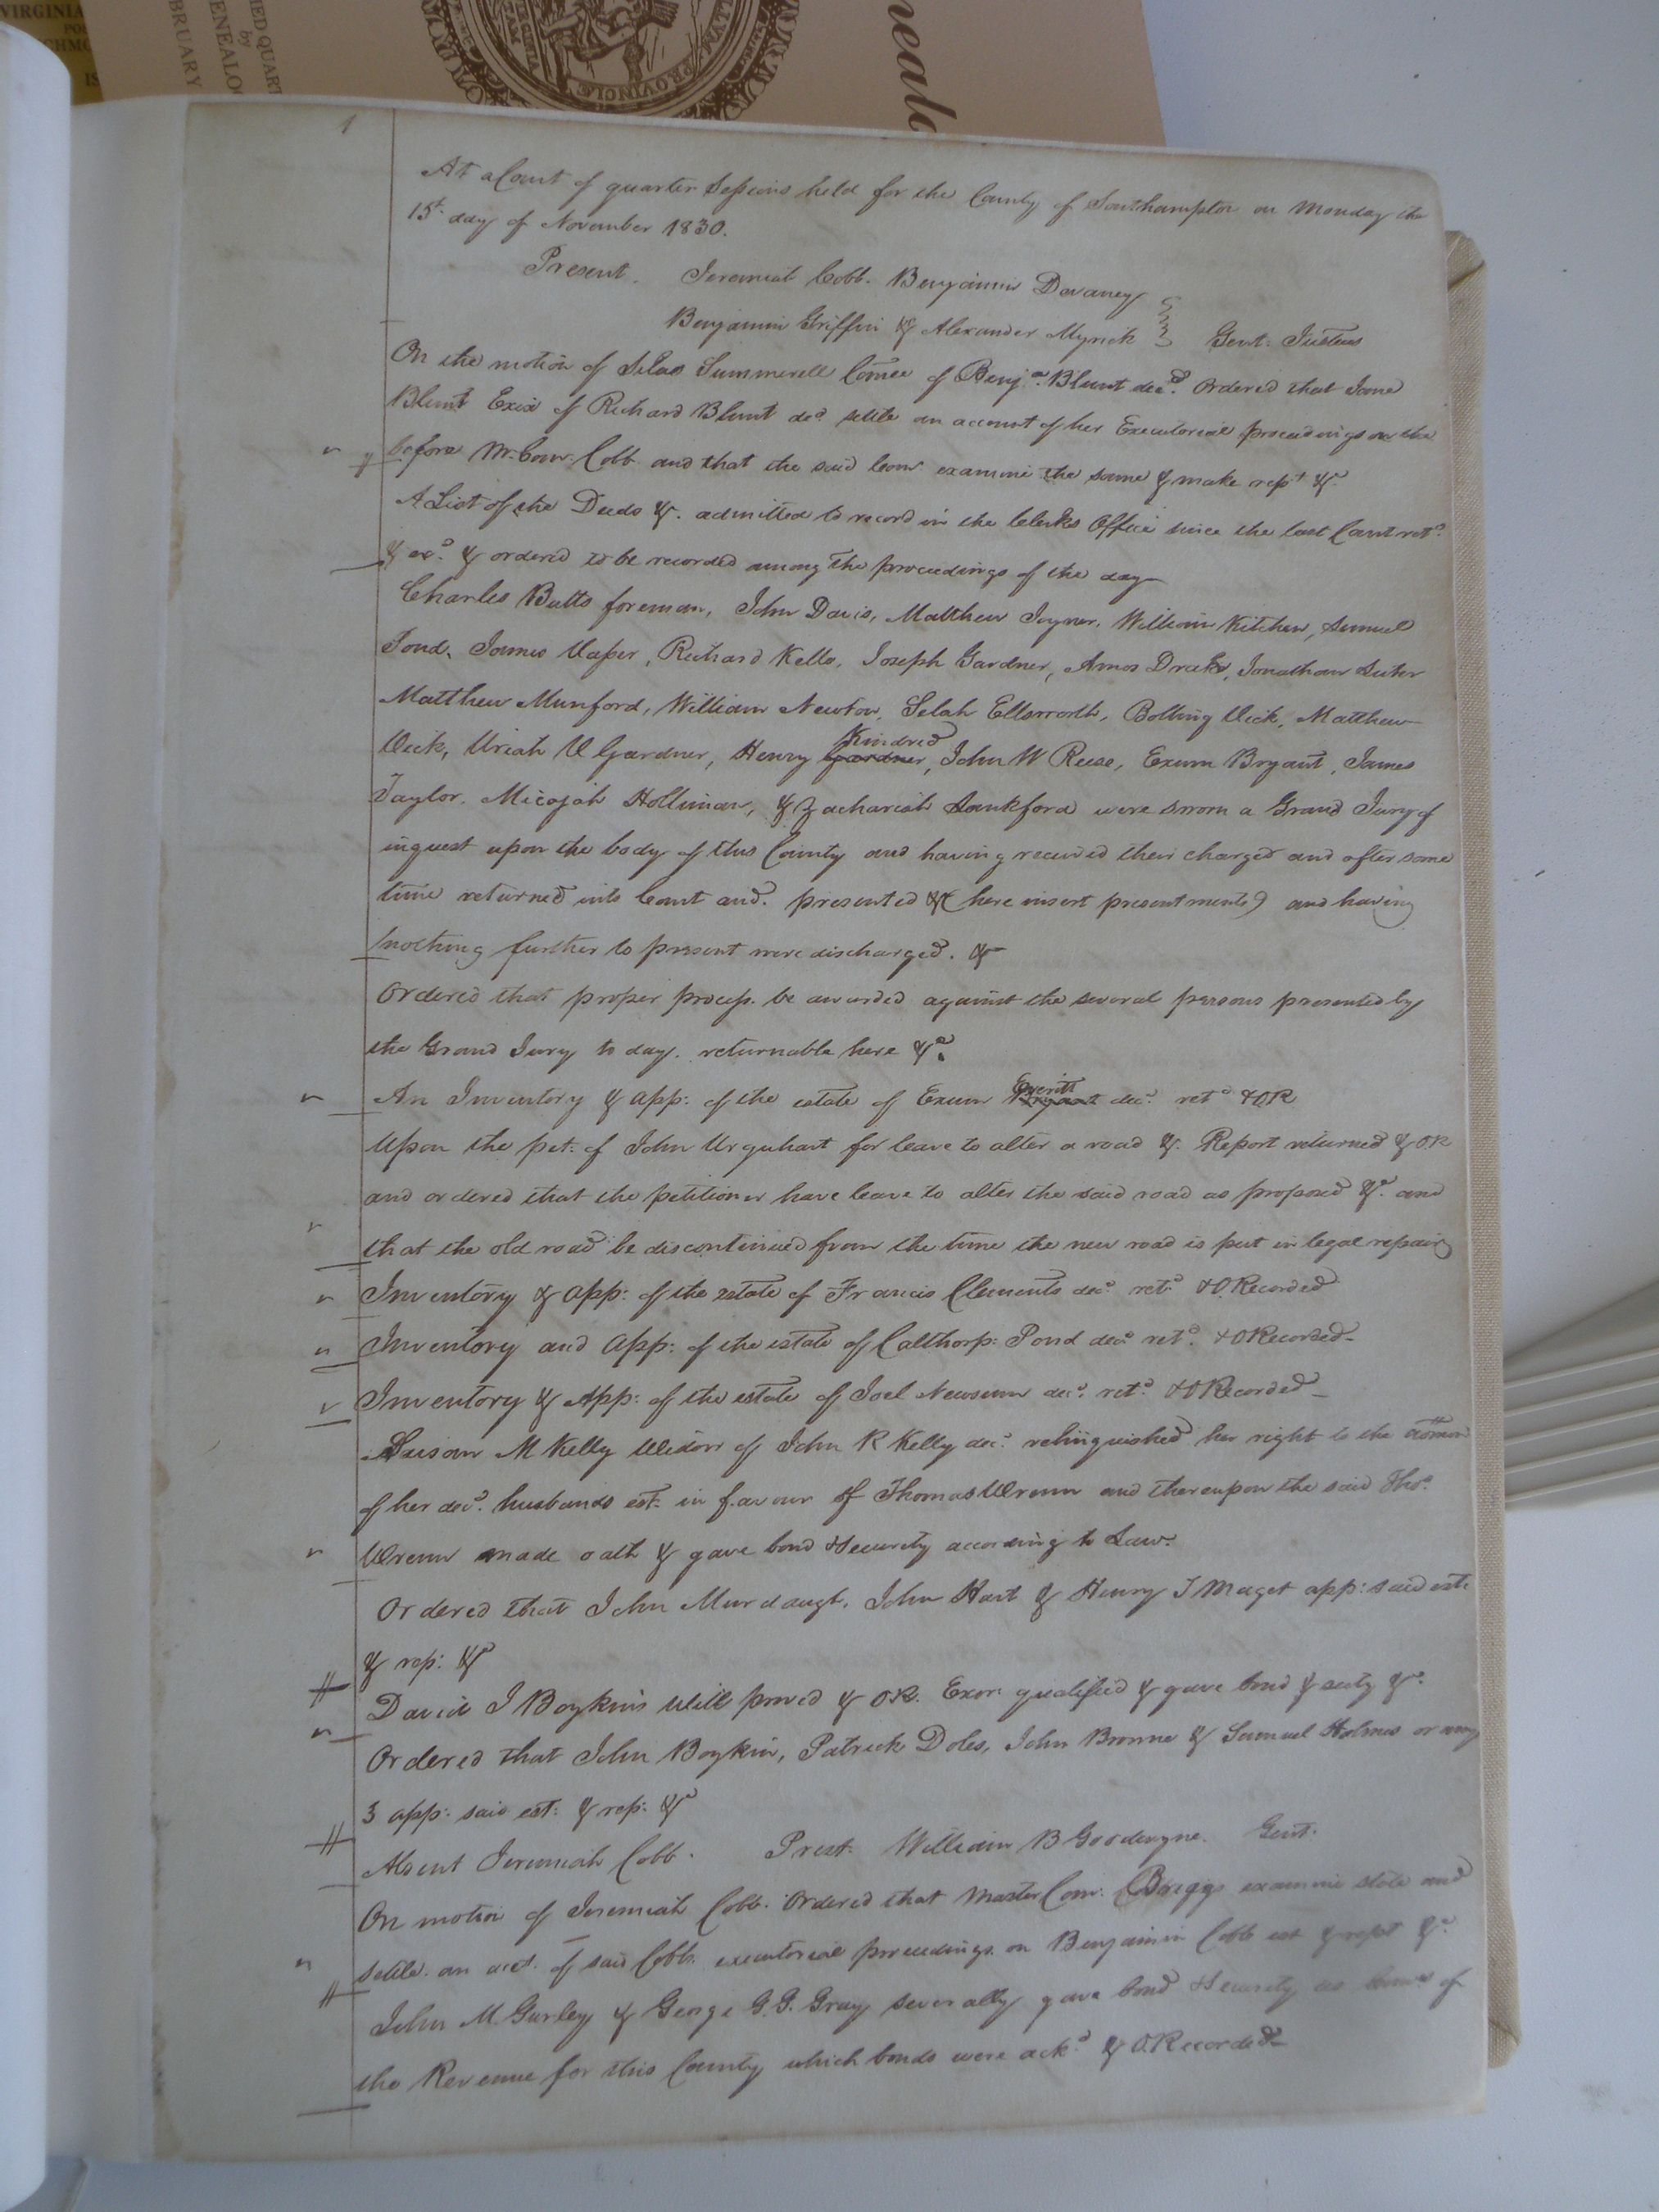 VIRGINIA
IED QUART
by
ENEALO
BRUARY
PROVINCIÆ
neal
1
At a Court of quarter Sessions held for the County of Southampton on Monday the
15th day of November 1830.
Present. Jeremiah Cobb. Benjamin Devaney
Benjamin Griffin & Alexander Myrick Gent: Justices
On the motion of Silas Summerell Comee of Benja. Blunt decd. Ordered that Jane
Blunt Exix of Richard Blunt decd. settle an account of her Executorial proceedings on the
before Mr. Comr. Cobb and that the said Comr. examine the same & make rept &c
A List of the Deeds &. admitted to record in the Clerks Office since the last Court retd.
& exd. & ordered to be recorded among the proceedings of the day
Charles Butts foreman, John Davis, Matthew Joyner, William Kitchen, Samuel
Pond, James Vasser, Richard Kello, Joseph Gardner, Amos Drake, Jonathan Suter
Matthew Munford, William Newton, Selah Ellsworth, Bolling Vick, Matthew
Vick, Uriah V Gardner, Henry Gardner Kindred, John W Reese, Exum Bryant, James
Taylor, Micajah Holliman, & Zachariah Lankford were sworn a Grand Jury of
inquest upon the body of this County and having received their charged and after some
time returned into Court and. presented &c (here insert presentments) and having
nothing further to present were discharged. &
Ordered that proper process. be awarded against the several persons presented by
the Grand Jury to day. returnable here &c.
An Inventory & app: of the estate of Exum Bryant Everitt decd. retd &OR
Upon the pet: of John Urquhart for leave to alter a road &. Report returned & OR
and ordered that the petitioner have leave to alter the said road as proposed &c. and
that the old road be discontinued from the time the new road is put in legal repair
Inventory & app: of the estate of Francis Clements decd. retd. &O.Recorded
Inventory and App: of the estate of Calthorp: Pond decd retd. &ORecorded-
Inventory & App: of the estate of Joel Newsum decd. retd. &ORecorded-
Susan M Kelly Widow of John R Kelly decd. relinquished her right to the admon
of her decd. husbands est: in favour of Thomas Wrenn and thereupon the said Thos.
Wrenn made oath & gave bond &Security according to Law.
Ordered that John Murdaugh, John Hart & Henry J Maget app: said est:
& rep: &c
David J Boykins Will proved & OR. Exor. qualified & gave bond & secty &c.
Ordered that John Boykin, Patrick Doles, John Browne & Samuel Holmes or any
3 app: said est: & rep: &c
Absent Jeremiah Cobb. Prest: William B Goodwyne. Gent.
On motion of Jeremiah Cobb. Ordered that Master Comr. Briggs examine state and
settle. an acct. of said Cobbs executorial proceedings on Benjamin Cobb est & rept &c.
John M. Gurley & George G.G. Gray severally gave bond &Security as Comrs of
the Revenue for this County which bonds were ackd. & O.Recorded-